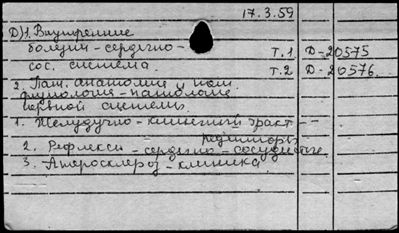 17.3.59
Д)1. Внутренние
болезни - сердечно - т.1 Д-20575
сос. система. т.2 Д-20576.
2. Пат. анатомия
нервной системы
1. Желудочно - кишечный тракт
2. Рефлексы - сердечно - сосудистые
3. Атеросклероз - клиника